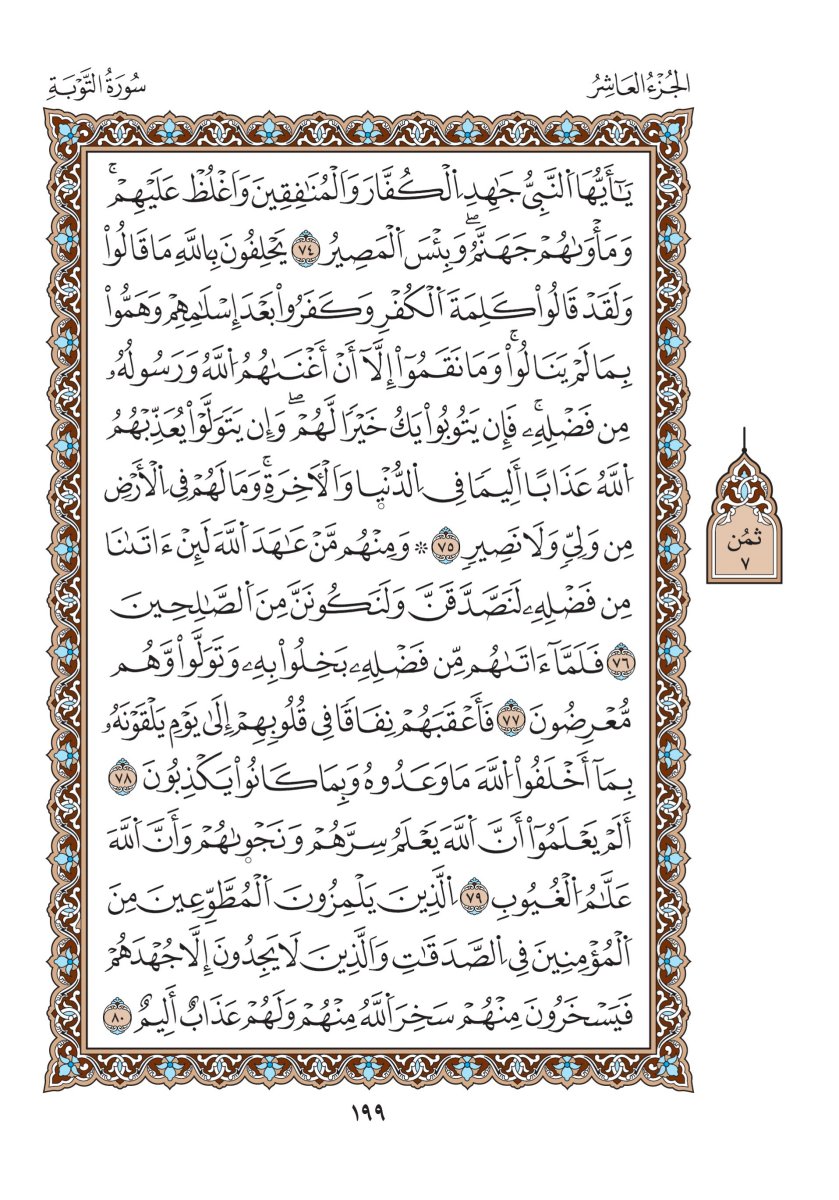 الجُزْءُ العَاشِرُ
سُورَةُ التَّوْبَةِ
يَـٰٓأَيُّهَا اَ۬لنَّبِيُّ جَـٰهِدِ اِ۬لْكُفَّارَ وَالْمُنَـٰفِقِينَ وَاغْلُظْ عَلَيْهِمْۚ
وَمَأْوَىٰهُمْ جَهَنَّمُۖ وَبِئْسَ اَ۬لْمَصِيرُ ٧٤ يَحْلِفُونَ بِاللَّهِ مَا قَالُواْ
وَلَقَدْ قَالُواْ كَلِمَةَ اَ۬لْكُفْرِ وَكَفَرُواْ بَعْدَ إِسْلَـٰمِهِمْ وَهَمُّواْ
بِمَا لَمْ يَنَالُواْۚ وَمَا نَقَمُوٓاْ إِلَّآ أَنْ أَغْنَىٰهُمُ اُ۬للَّهُ وَرَسُولُهُۥ
مِن فَضْلِهِۦۚ فَإِن يَتُوبُواْ يَكُ خَيْرًا لَّهُمْۖ وَإِن يَتَوَلَّوْاْ يُعَذِّبْهُمُ
اُ۬للَّهُ عَذَابًا أَلِيمًا فِي اِ۬لدُّنْيَا وَالْأٓخِرَةِۚ وَمَا لَهُمْ فِي اِ۬لْأَرْضِ
مِن وَلِيٍّ وَلَا نَصِيرٍ ٧٥ ۞ وَمِنْهُم مَّنْ عَـٰهَدَ اَ۬للَّهَ لَئِنْ ءَاتَىٰنَا
مِن فَضْلِهِۦ لَنَصَّدَّقَنَّ وَلَنَكُونَنَّ مِنَ اَ۬لصَّـٰلِحِينَ
٧٦ فَلَمَّآ ءَاتَىٰهُم مِّن فَضْلِهِۦ بَخِلُواْ بِهِۦ وَتَوَلَّواْ وَّهُم
مُّعْرِضُونَ ٧٧ فَأَعْقَبَهُمْ نِفَاقًا فِي قُلُوبِهِمْ إِلَىٰ يَوْمِ يَلْقَوْنَهُۥ
بِمَآ أَخْلَفُواْ اُ۬للَّهَ مَا وَعَدُوهُ وَبِمَا كَانُواْ يَكْذِبُونَ ٧٨
أَلَمْ يَعْلَمُوٓاْ أَنَّ اَ۬للَّهَ يَعْلَمُ سِرَّهُمْ وَنَجْوَىٰهُمْ وَأَنَّ اَ۬للَّهَ
عَلَّـٰمُ اُ۬لْغُيُوبِ ٧٩ اِ۬لَّذِينَ يَلْمِزُونَ اَ۬لْمُطَّوِّعِينَ مِنَ
اَ۬لْمُؤْمِنِينَ فِي اِ۬لصَّدَقَـٰتِ وَالَّذِينَ لَا يَجِدُونَ إِلَّا جُهْدَهُمْ
فَيَسْخَرُونَ مِنْهُمْ سَخِرَ اَ۬للَّهُ مِنْهُمْ وَلَهُمْ عَذَابٌ أَلِيمٌ ٨٠
ثُمُن
٧
١٩٩